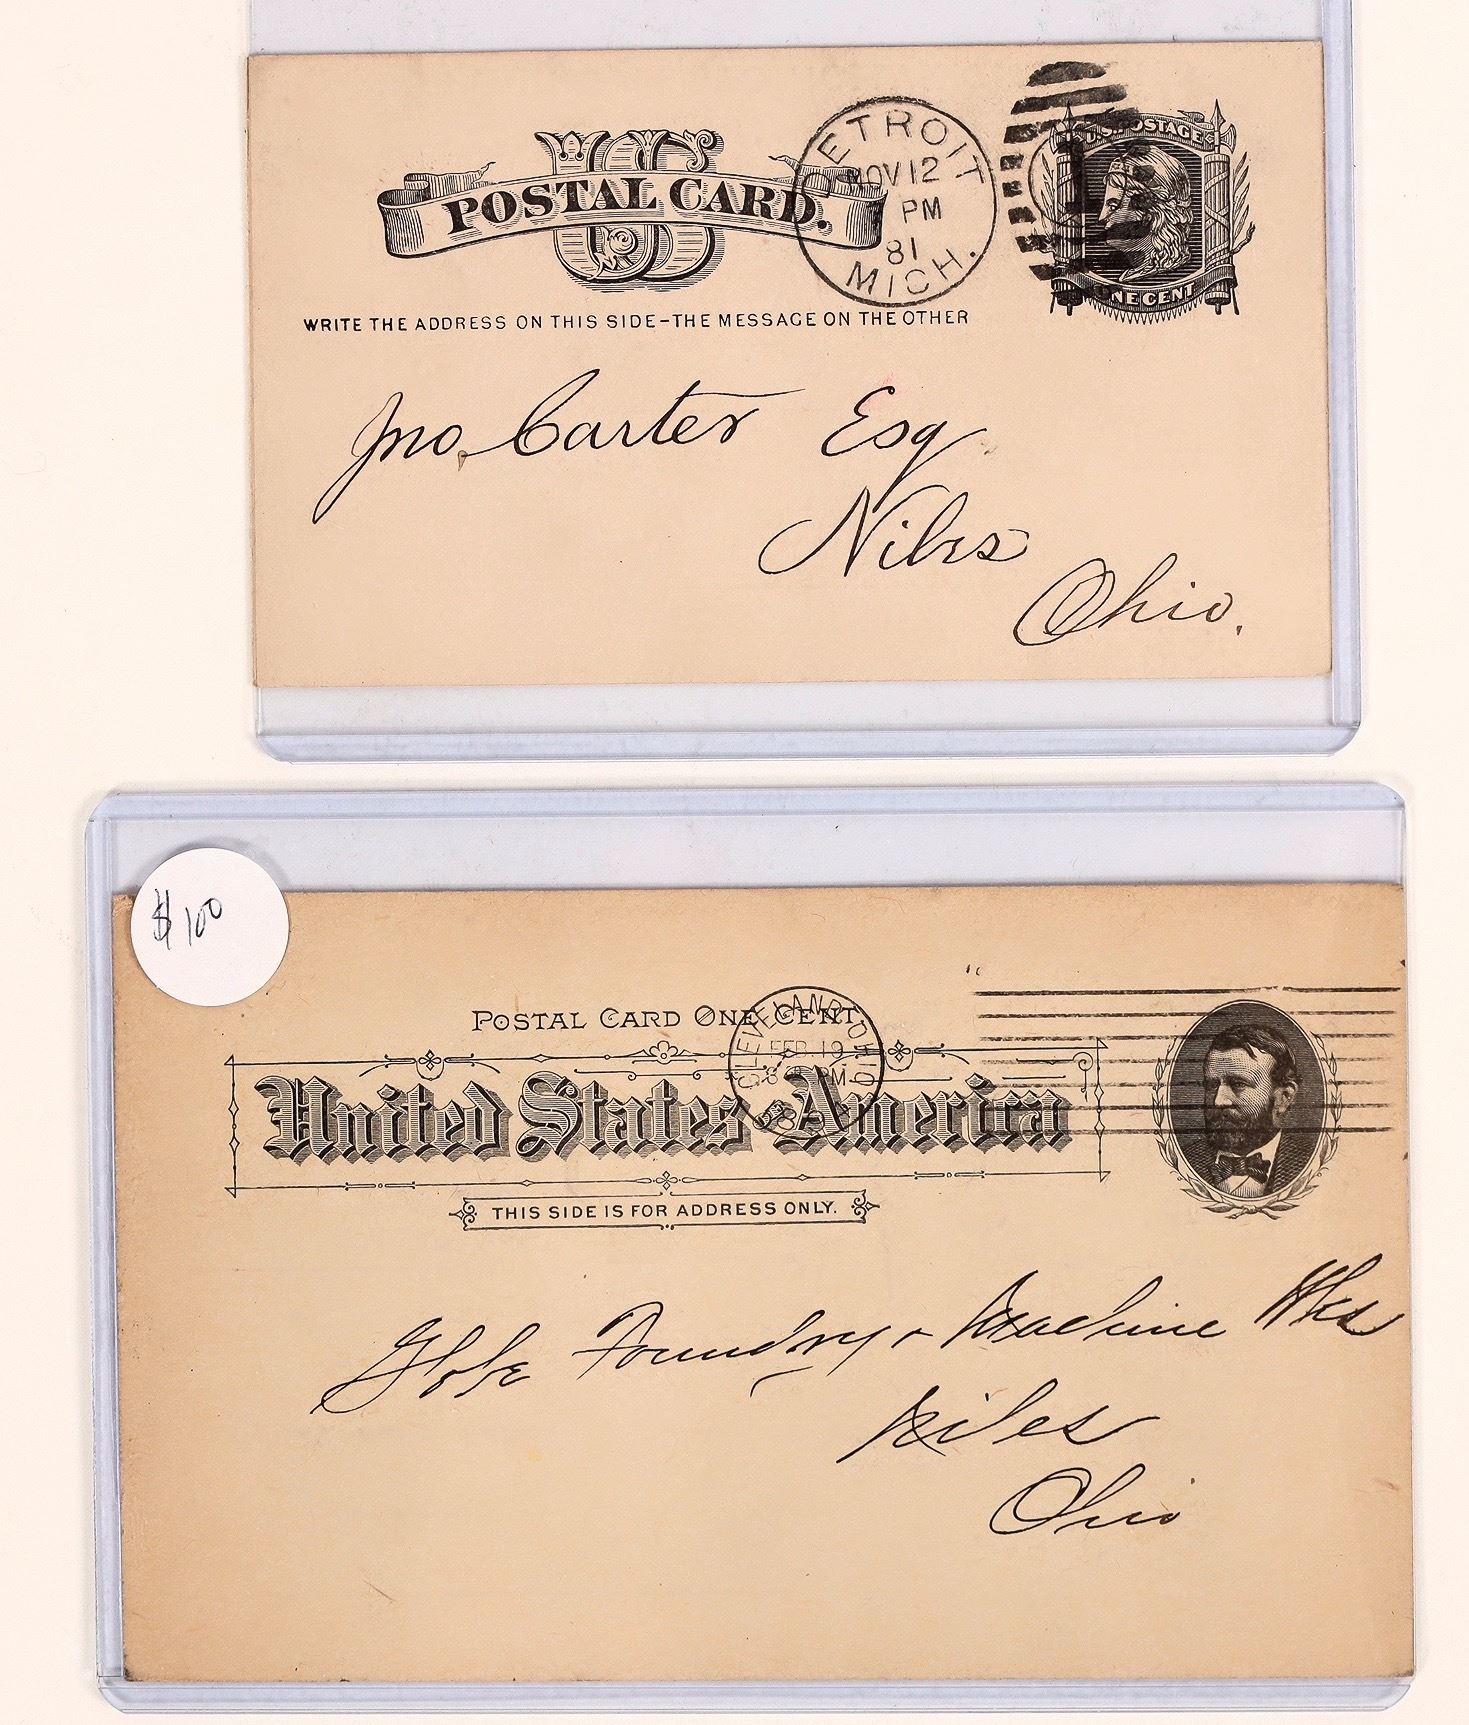 US
POSTAL CARD.
DETROIT
NOV 12
PM
81
MICH.
U.S. POSTAGE
ONE CENT
WRITE THE ADDRESS ON THIS SIDE-THE MESSAGE ON THE OTHER
Jno. Carter Esq
Niles
Ohio.
$100
POSTAL CARD ONE CENT.
CLEVELAND, OHIO
FEB 19
PM
United States America
THIS SIDE IS FOR ADDRESS ONLY.
Globe Foundry + Machine Wks
Niles
Ohio